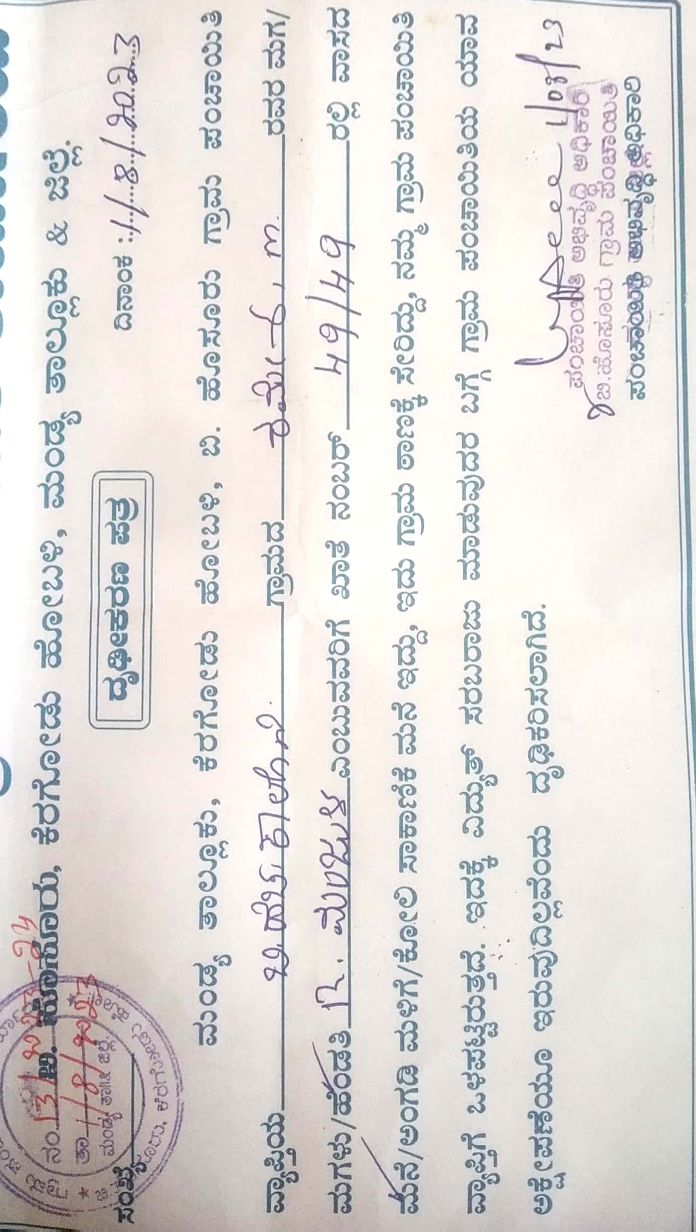 ಬಿ. ಹೊಸೂರು, ಕೆರಗೋಡು ಹೋಬಳಿ, ಮಂಡ್ಯ ತಾಲ್ಲೂಕು & ಜಿಲ್ಲೆ.
ನಂ 13/2023-24
ತಾ 1/8/2023
ಮಂಡ್ಯ ತಾ॥ ಜಿಲ್ಲೆ
ಸಂಖ್ಯೆ
ದಿನಾಂಕ : 1/8/2023
ದೃಢೀಕರಣ ಪತ್ರ
ಮಂಡ್ಯ ತಾಲ್ಲೂಕು, ಕೆರಗೋಡು ಹೋಬಳಿ, ಬಿ. ಹೊಸೂರು ಗ್ರಾಮ ಪಂಚಾಯಿತಿ
ವ್ಯಾಪ್ತಿಯ ಬಿ.ಹೊಸೂರು ಕಾಲೋನಿ ಗ್ರಾಮದ ರವರ ಮಗ/
ಮಗಳು/ಹೆಂಡತಿ ಮಂಜುಳ ಎಂಬುವವರಿಗೆ ಖಾತೆ ನಂಬರ್ 49/49 ರಲ್ಲಿ ವಾಸದ
ಮನೆ/ಅಂಗಡಿ ಮಳಿಗೆ/ಕೋಳಿ ಸಾಕಾಣಿಕೆ ಮನೆ ಇದ್ದು, ಇದು ಗ್ರಾಮ ಠಾಣಕ್ಕೆ ಸೇರಿದ್ದು, ನಮ್ಮ ಗ್ರಾಮ ಪಂಚಾಯಿತಿ
ವ್ಯಾಪ್ತಿಗೆ ಒಳಪಟ್ಟಿರುತ್ತದೆ. ಇದಕ್ಕೆ ವಿದ್ಯುತ್ ಸರಬರಾಜು ಮಾಡುವುದರ ಬಗ್ಗೆ ಗ್ರಾಮ ಪಂಚಾಯಿತಿಯ ಯಾವ
ಆಕ್ಷೇಪಣೆಯೂ ಇರುವುದಿಲ್ಲವೆಂದು ದೃಢಿಕರಿಸಲಾಗಿದೆ.
1/08/23
ಪಂಚಾಯಿತಿ ಅಭಿವೃದ್ಧಿ ಅಧಿಕಾರಿ
ಬಿ.ಹೊಸೂರು ಗ್ರಾಮ ಪಂಚಾಯಿತಿ
ಪಂಚಾಯಿತಿ ಅಭಿವೃದ್ಧಿ ಅಧಿಕಾರಿ